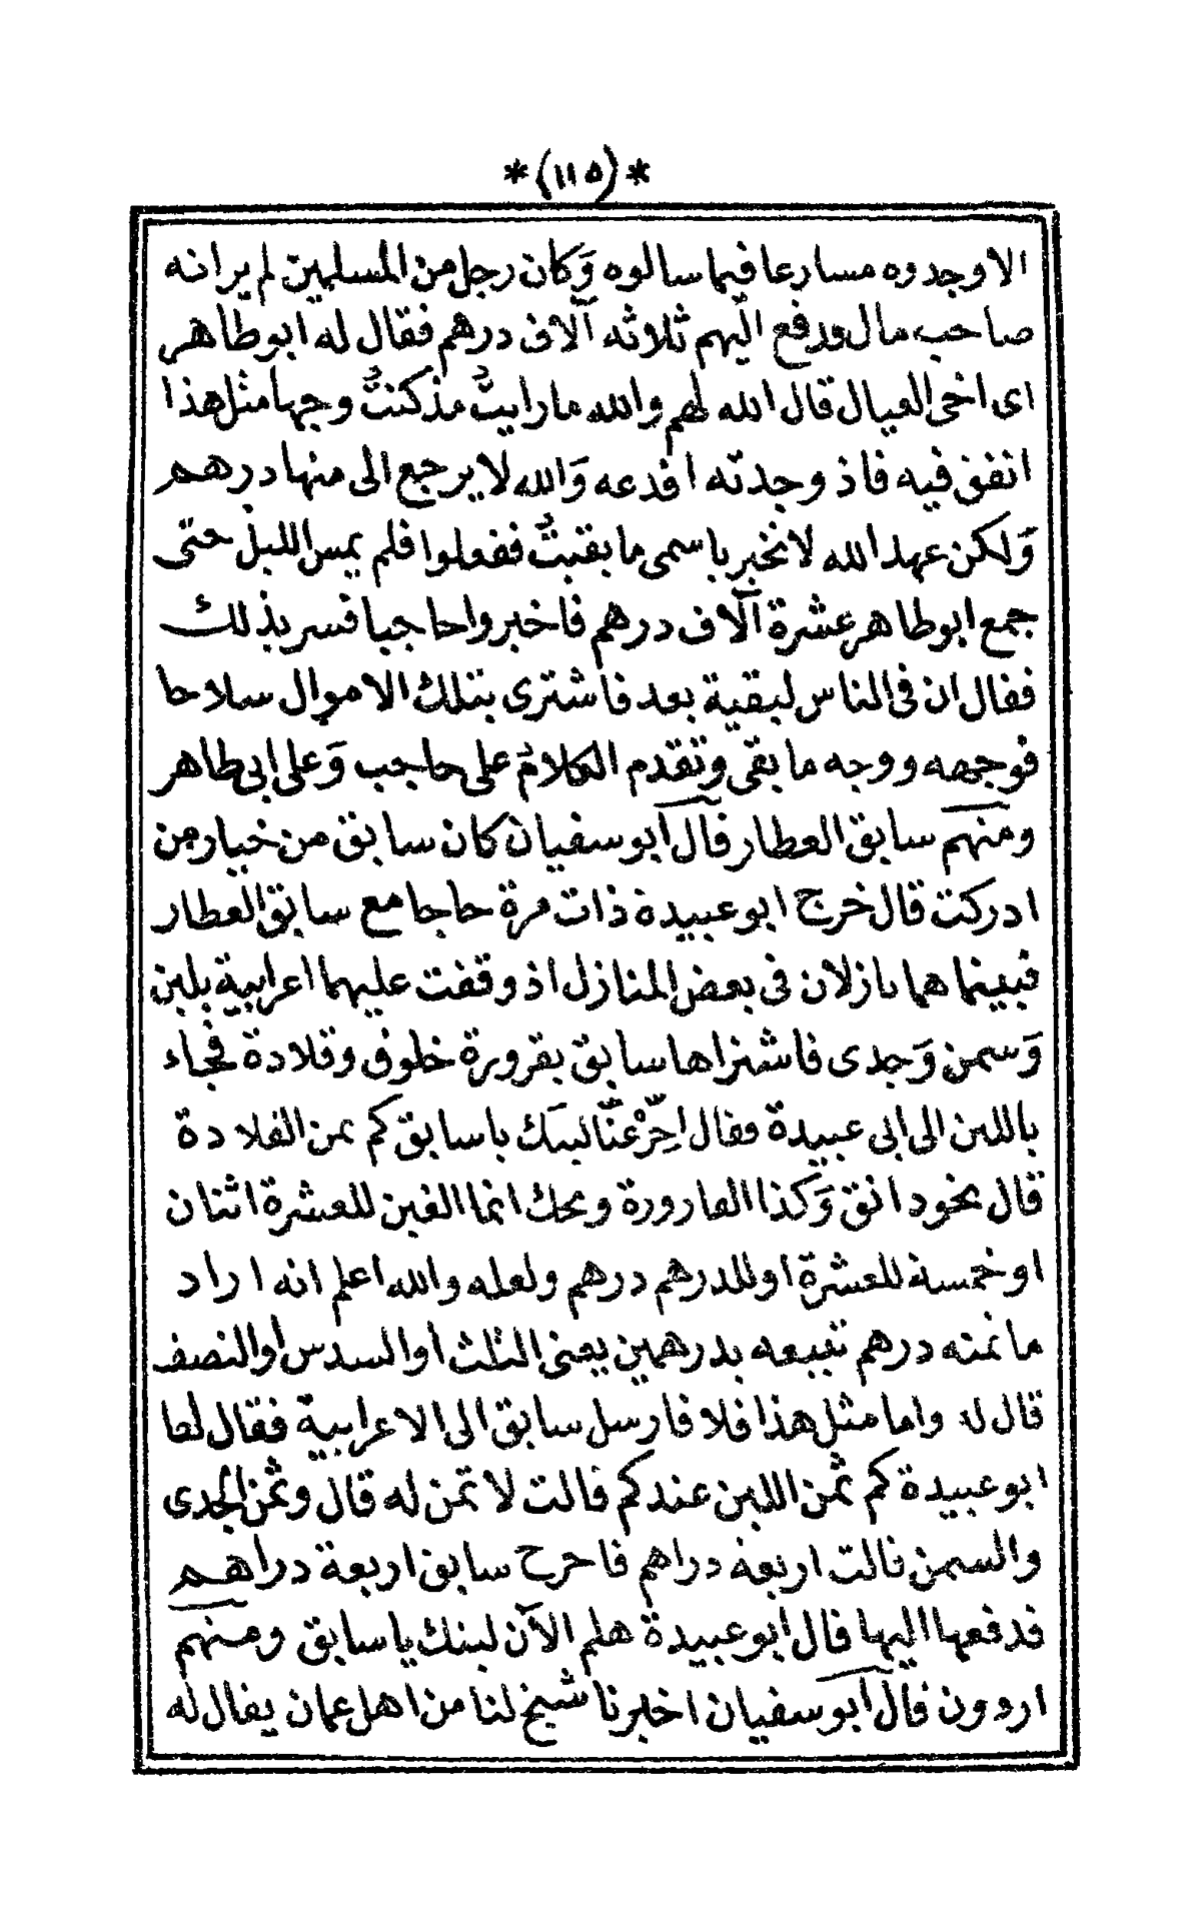 *(١١٥)*
الا وجدوه مسارعا فيما سالوه وَكان رجل من المسلمين لم ير انه
صاحب مال فدفع اليهم ثلاثه آلاف درهم فقال له ابو طاهر
اى اخى العيال قال الله لهم والله ما رايتُ مذ كنتُ وجها مثل هذا
انفق فيه فاذ وجدته افدعه وَالله لا يرجع الى منها درهم
وَلكن عهد الله لا تخبر باسمى ما بقيتُ ففعلوا فلم يمس الليل حتى
جمع ابو طاهر عشرة آلاف درهم فاخبروا حاجبا فسر بذلك
فقال ان فى الناس لبقية بعد فاشترى بتلك الاموال سلاحا
فوجهه ووجه ما بقى وتقدم الكلامُ على حاجب وَعلى ابى طاهر
ومنهم سابق العطار قال ابو سفيان كان سابق من خيار من
ادركت قال خرج ابو عبيدة ذات مرة حاجا مع سابق العطار
فبينما هما نازلان فى بعض المنازل اذ وقفت عليهما اعرابية بلبن
وَسمن وَجدى فاشتراها سابق بقرورة خلوق وقلادة فجاء
باللبن الى ابى عبيدة فقال اخِّرْ عنَّا لبنك يا سابق كم ثمن القلادة
قال بخود انق وَكذا القارورة ويحك انما الغبن للعشرة اثنان
او خمسة للعشرة او للدرهم درهم ولعله والله اعلم انه اراد
ما ثمنه درهم تبيعه بدرهمين يعنى الثلث او السدس او النصف
قال له واما مثل هذا فلا فارسل سابق الى الاعرابية فقال لها
ابو عبيدة كم ثمن اللبن عندكم قالت لا ثمن له قال وثمن الجدى
والسمن قالت اربعة دراهم فاخرج سابق اربعة دراهم
فدفعها اليها قال ابو عبيدة هلم الآن لبنك يا سابق ومنهم
اردون قال ابو سفيان اخبرنا شيخ لنا من اهل عمان يقال له